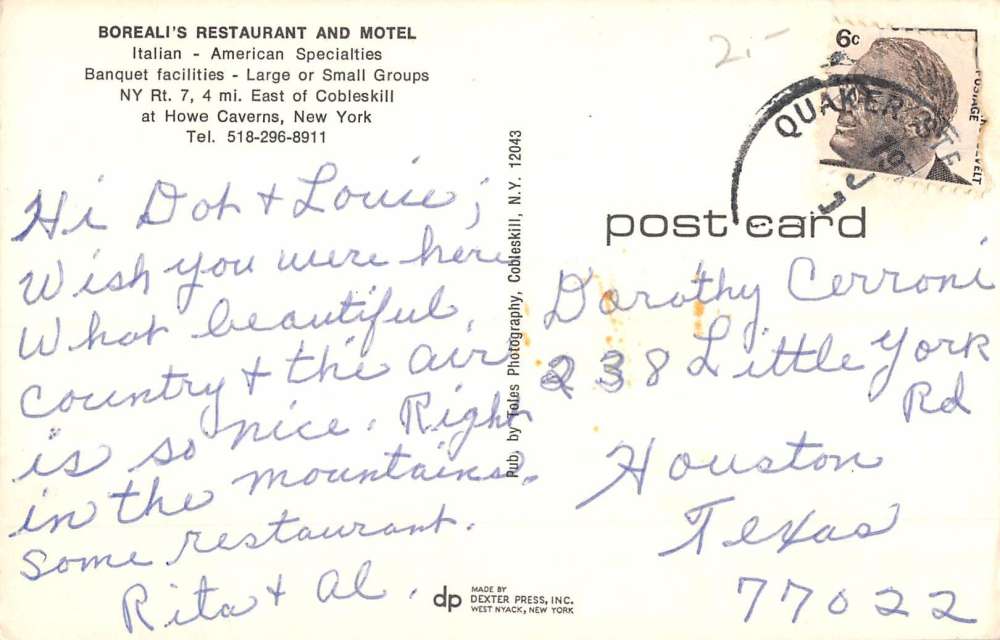 BOREALI'S RESTAURANT AND MOTEL
Italian - American Specialties
Banquet facilities - Large or Small Groups
NY Rt. 7, 4 mi. East of Cobleskill
at Howe Caverns, New York
Tel. 518-296-8911
Hi Dot & Louie;
Wish you were here
What beautiful
country & the air
is so nice. Right
in the mountains.
Some restaurant.
Rita & Al.
Pub. by Toles Photography, Cobleskill, N.Y. 12043
dp
MADE BY
DEXTER PRESS, INC.
WEST NYACK, NEW YORK
2.-
6c
POSTAGE
QUAKER
post card
Dorothy Cerroni
238 Little York
Rd
Houston
Texas
77022